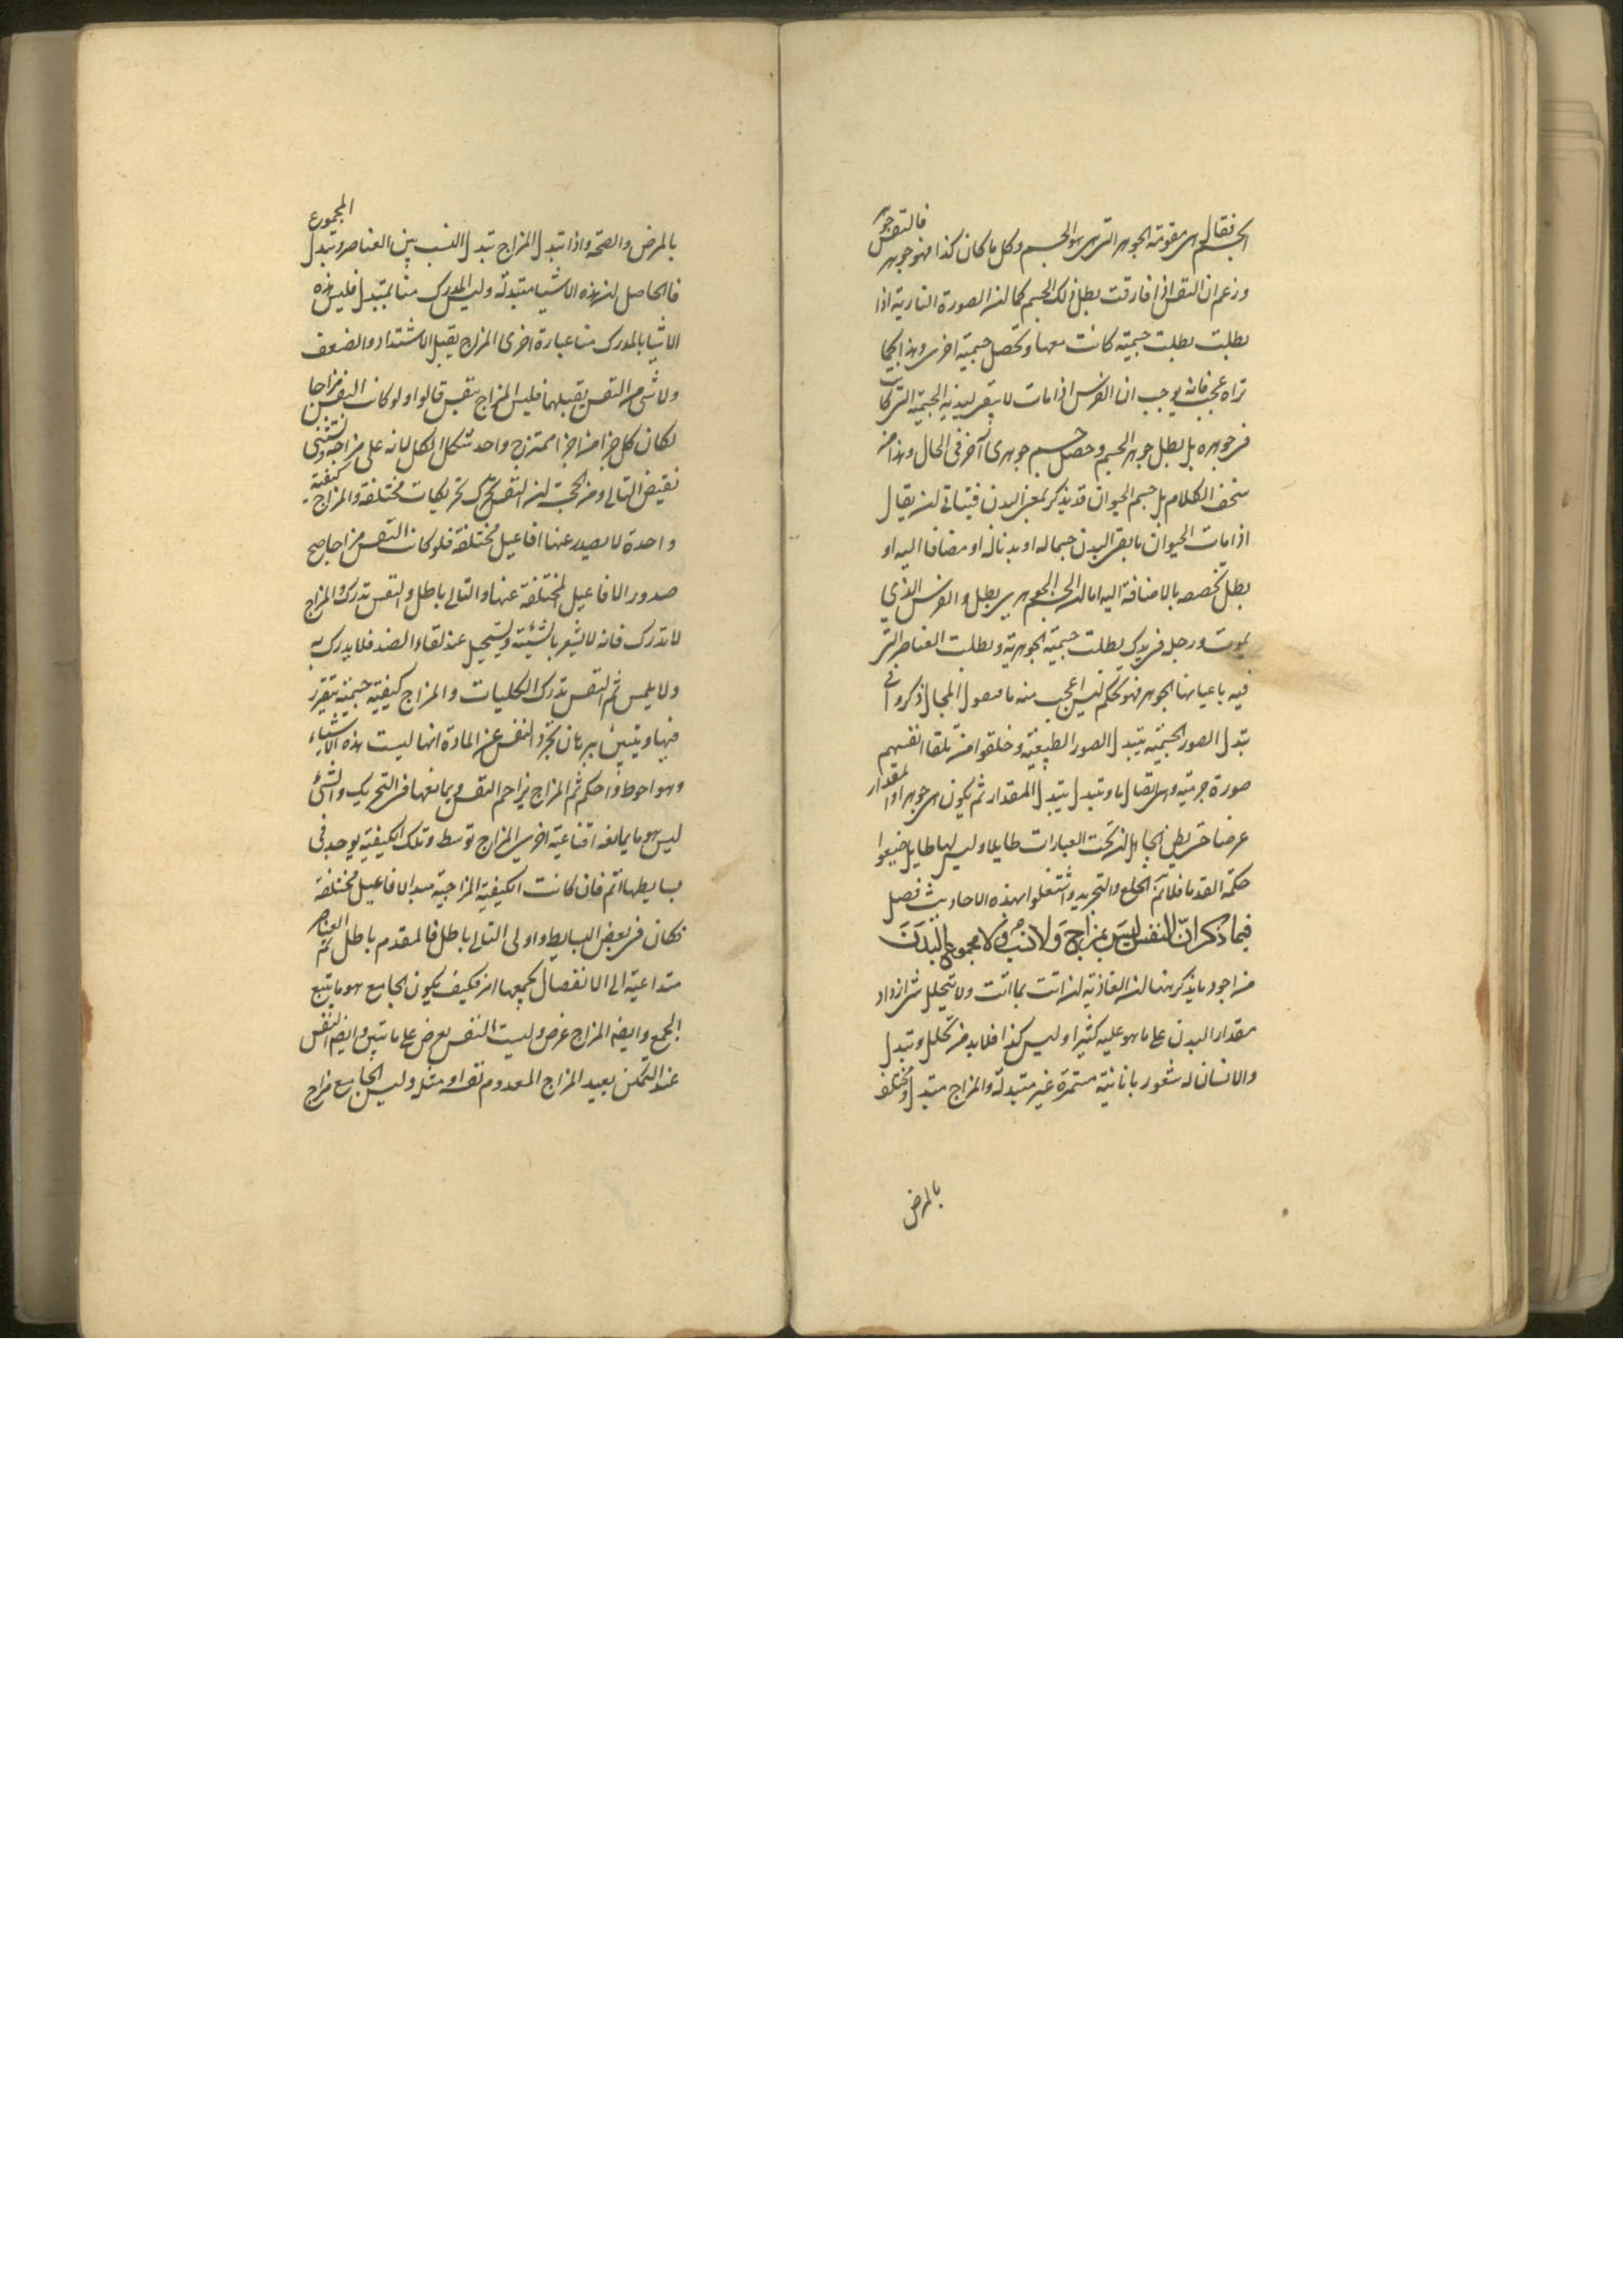 الجسم فقال هى مقومة الجوهر التى هى هو الجسم وكل ما كان كذا فهو جوهر فالنفس جوهر
وزعم ان النفس اذا فارقت بطل ذلك الجسم كما ان الصورة النارية اذا
بطلت بطلت جسمية كانت معها وتحصل جسمية اخرى وهذا كما
تراه عجب فانه يوجب ان الفرس اذا مات لا يبقى لبدنه الجسمية التى كانت
فى جوهره بل يبطل جوهر الجسم وحصل جسم جوهرى آخر فى الحال وهذا من
سخف الكلام بل جسم الحيوان قد يذكر بمعنى البدن فيتاتى ان يقال
اذا مات الحيوان ما بقى البدن جسما له او بدنا له او مضافا اليه او
بطل تخصصه بالاضافة اليه اما ان الجسم الجوهرى يبطل والفرس الذي
يموت ورجل فى يدك بطلت جسميته الجوهرية وبطلت العناصر التى
فيه باعيانها الجوهر فهو تحكم ليس اعجب منه ما يقول المجال ذكروا فى
تبدل الصور الجسمية بتبدل الصور الطبيعية وخلقوا من تلقا انفسهم
صورة جرمية وهى اتصال ما وتتبدل بتبدل المقدار ثم يكون هى جوهر او المقدار
عرضا حتى يظن الجاهل ان تحت العبارات طايلا وليس لها طايل ضيعوا
حكمة القدما فلا تم الخلع والتجريد واشتغلوا بهذه الاحاديث فصل
فيما ذكر انّ النفس ليس بمزاج ولا نسب ولا مجموع البدن
من اجود ما يذكر هنا ان الغاذية ان اتت بما اتت ولا يتحلل شى ازداد
مقدار البدن على ما هو عليه كثيرا وليس كذا فلا بد من تحلل وتبدل
والانسان له شعور بانانية مستمرة غير متبدلة والمزاج متبدل ومختلف
بالمرض
بالمرض والصحة واذا تبدل المزاج تبدل النسب بين العناصر وتبدل المجموع
فالحاصل ان هذه الاشيا متبدلة وليس المدرك منا بمتبدل فليس هذه
الاشيا بالمدرك منا عبارة اخرى المزاج يقبل الاشتداد والضعف
ولا شى من النفس يقبلهما فليس المزاج بنفس قالوا ولو كان النفس مزاجا
لكان كل جزء من اجزا ممتزج واحد شكل الكل لانه على مزاجه ونستثنى
نقيض التالى ومن الحجة ان النفس تحرك تحريكات مختلفة والمزاج كيفية
واحدة لا يصدر عنها افاعيل مختلفة فلو كانت النفس مزاجا صح
صدور الافاعيل المختلفة عنها والتالى باطل والنفس تدرك والمزاج
لا تدرك فانه لا يشعر بالشئية ويستحيل عند لقاء الضد فلا يدرك به
ولا يلمس ثم النفس تدرك الكليات والمزاج كيفية جسمية يتقرر
فيها ويتبين ببرهان تجرد النفس عن المادة انها ليست هذه الاشياء
وهو احوط واحكم ثم المزاج يزاحم النفس ويمانعها فى التحريك والشئ
ليس هو ما يمانعه اقناعية اخرى المزاج توسط وتلك الكيفية يوجد فى
بسايطها اتم فان كانت الكيفية المزاجية مبدا الافاعيل مختلفة
لكان فى بعض البسايط واولى التالى باطل فالمقدم باطل ثم العناصر
متداعية الى الانفصال يجمعها امر فكيف يكون الجامع هو ما يتبع
الجمع وايضا المزاج عرض وليست النفس بعرض على ما تبين وايضا النفس
عند التمكن يعيد المزاج المعدوم نفسه او مثله وليس الجامع مزاج